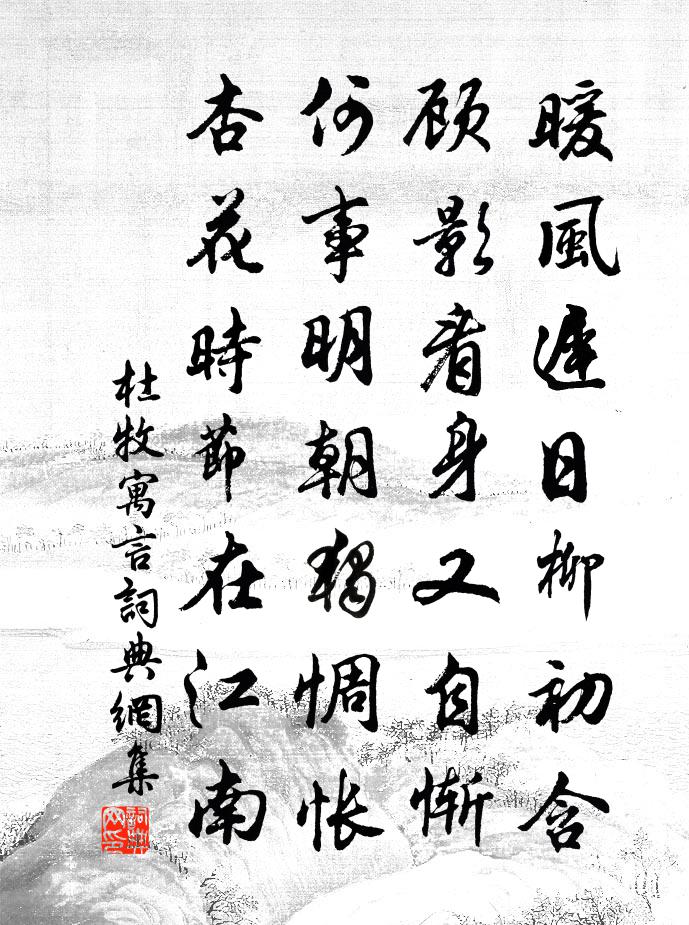 暖風遲日柳初含
顾影看身又自慚
何事明朝獨惆悵
杏花時節在江南
杜牧寓言詞典網集